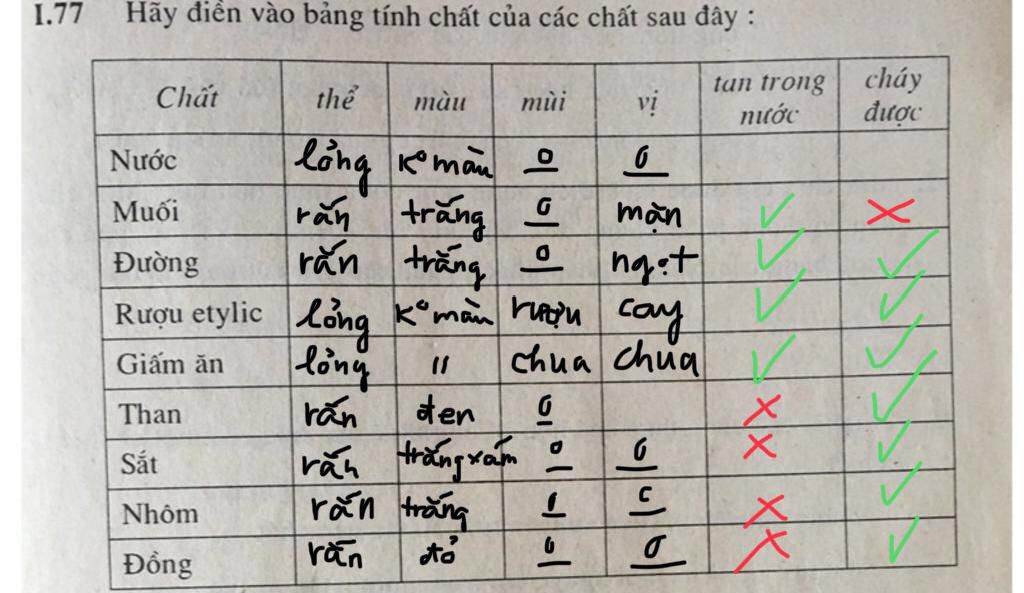 I.77 Hãy điền vào bảng tính chất của các chất sau đây :
Chất thể màu mùi vị tan trong nước cháy được
Nước lỏng K° màu 0 0
Muối rắn trắng 0 mặn ✓ ✗
Đường rắn trắng 0 ngọt ✓ ✓
Rượu etylic lỏng K° màu rượu cay ✓ ✓
Giấm ăn lỏng " chua chua ✓ ✓
Than rắn đen 0 ✗ ✓
Sắt rắn trắng xám 0 0 ✗ ✓
Nhôm rắn trắng ✗ ✓
Đồng rắn đỏ 0 0 ✗ ✓